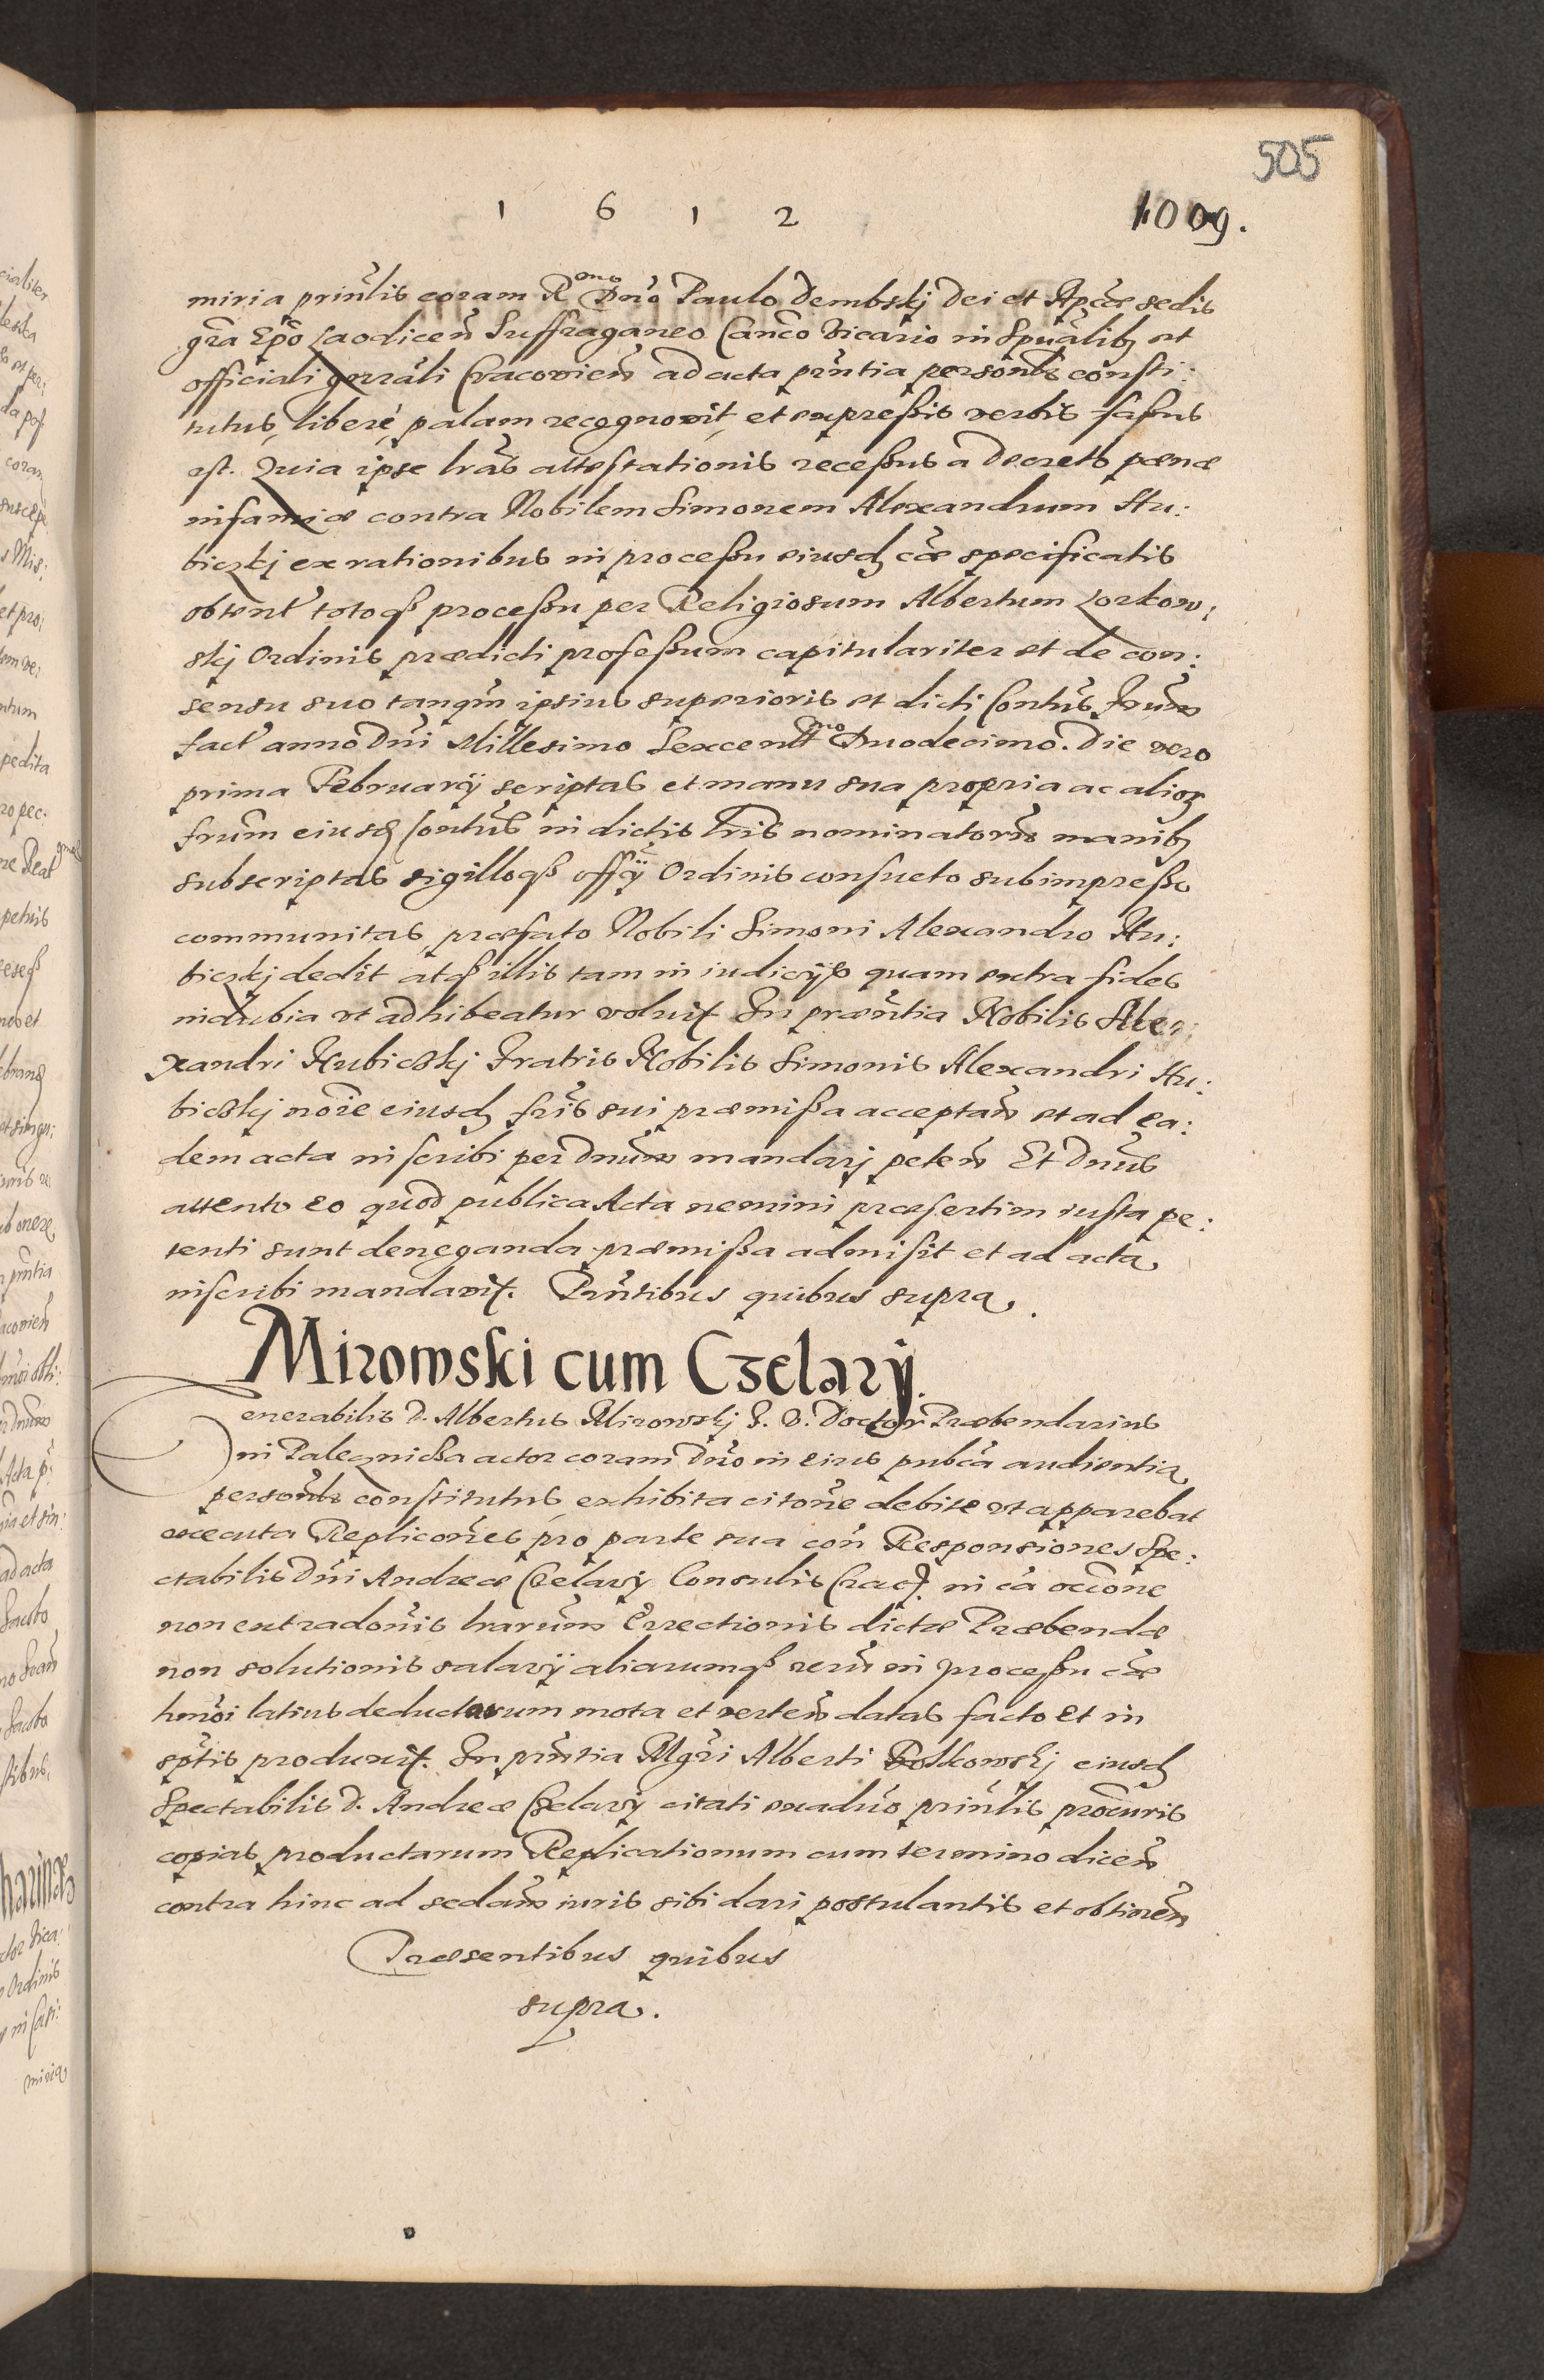 505
1 6 1 2
1009.
miria prin̄lis coram R̄mo Dn̄o Paulo Dembskj Dei et Ap̄cæ sedis
gr̄a Ep̄o Laodicen̄ Suffraganeo Can̄co Vicario in Sp̄ualib⁊ et
officiali gn̄rāli Cracovien̄ ad acta pn̄tia person̄lr consti:
tutus, liberè, palam recognovit, et expreßis verbis faßus
est. Quia ipse lr̄as attestationis receßus a Decreto pænæ
infamiæ contra Nobilem Simonem Alexandrum Hu:
biczkj ex rationibus in proceßu eiusd̄ cāe specificatis
obtent' totoq̃ proceßu per Religiosum Albertum Lorkow:
skj Ordinis prædicti profeßum capitulariter et de con:
sensu suo tanqm̄ ipsius superioris et dicti Contūs frūm
fact' anno Dn̄i Millesimo Sexcent̄mo Duodecimo. Die vero
prima Februarÿ scriptas et manu sua propria ac alior⁊
frūm eiusd̄ Contūs in dictis lr̄is nominatorūm manib⁊
subscriptas sigilloq̃ offÿ Ordinis consueto subimpreßo
communitas, præfato Nobili Simoni Alexandro Hu:
biczkj dedit atq̃ illis tam in iudicÿs quam extra fides
indubia vt adhibeatur voluit. In præn̄tia Nobilis Ale:
xandri Hubicskj Fratris Nobilis Simonis Alexandri Hu:
bicskj nōie eiusd̄ fr̄is sui præmißa acceptan̄ et ad ea:
dem acta inscribi per Dn̄um mandarj peten̄ Et Dn̄us
attento eo quod publica Acta nemini præsertim iusta pe:
tenti sunt deneganda præmißa admisit et ad acta
inscribi mandavit. Pn̄tibus quibus supra.
Mirowski cum Czelarÿ.
Venerabilis D. Albertus Mirowskj J. V. Doctor Præbendarius
in Paleznicza actor coram Dn̄o in eius pub̄ca audientia
person̄lr constitutus, exhibita cito̅ne debite vt apparebat
executa Replico̅nes pro parte sua con̄ Responsiones Spe:
ctabilis Dn̄i Andreæ Czelarÿ Consulis Crac̄. in cā occ̄one
non extrado̅nis lrarūm Errectionis dictæ Præbendæ
non solutionis salarÿ aliarumq̃ rerūm in proceßu cāe
hm̄oi latius deductarum mota et verten̄ datas facto et in
sptis produxit. In pn̄tia Mgr̄i Alberti Polkowskj eiusd̄
Spectabilis D. Andreæ Czelarÿ citati ex aduo̅ prin̄lis procūris
copias productarum Replicationum cum termino dicen̄
contra hinc ad sedān iuris sibi dari postulantis et obtinen̄
Præsentibus quibus
supra.